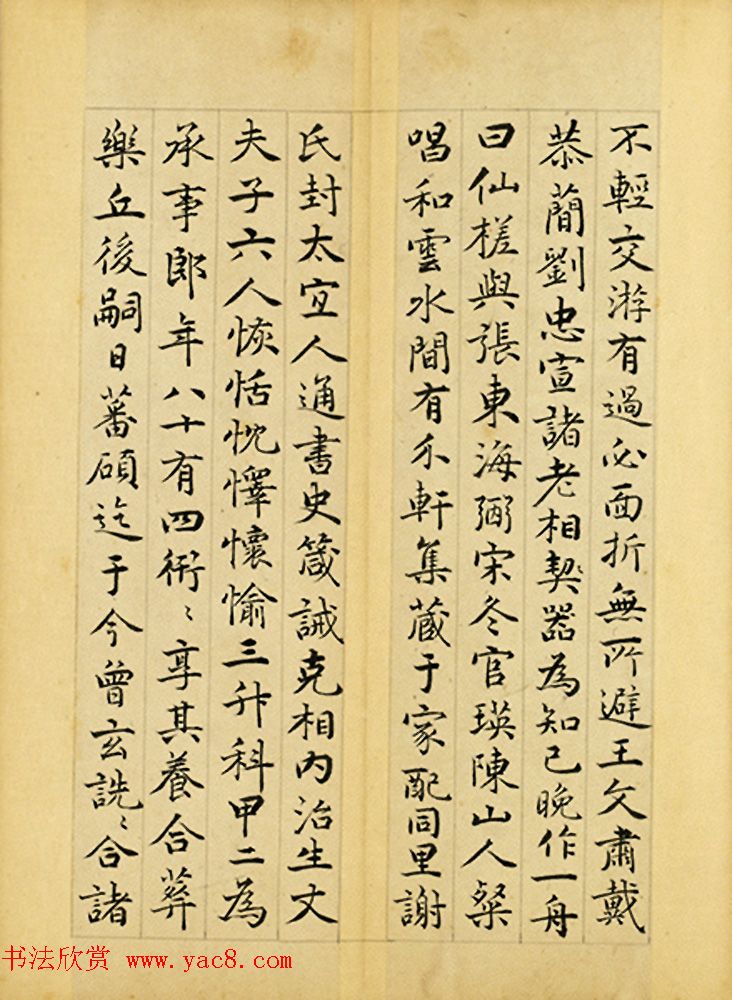 不輕交游有過必面折無所避王文肅戴
恭簡劉忠宣諸老相契器為知己晚作一舟
曰仙槎與張東海弼宋冬官瑛陳山人粲
唱和雲水間有尒軒集藏于家配同里謝
氏封太宜人通書史箴誡克相內治生丈
夫子六人恢恬忱懌懷愉三升科甲二為
承事郎年八十有四衎〻享其養合葬
樂丘後嗣日蕃碩迄于今曾玄詵〻合諸
书法欣赏 www.yac8.com